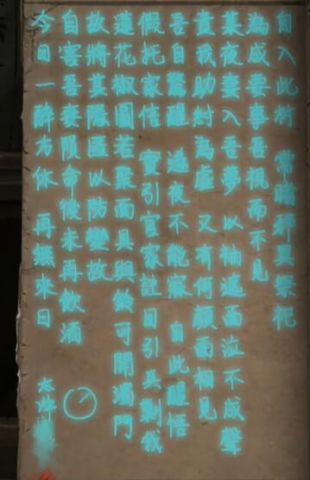 自入此村 常睹邪異祭祀
為成要事吾視而不見
某夜妻入吾夢 以袖遮面泣不成聲
責我助紂為虐 又有何顏面相見
吾自驚醒 夜不能寐 自此醒悟
假托家 實引官家註目引兵剿
蓮花椒圖若聚面具與鈴可開濁門
故將其隱匿以防變故
自害吾妻殞命後未再飲酒
今日一醉方休 再無來日